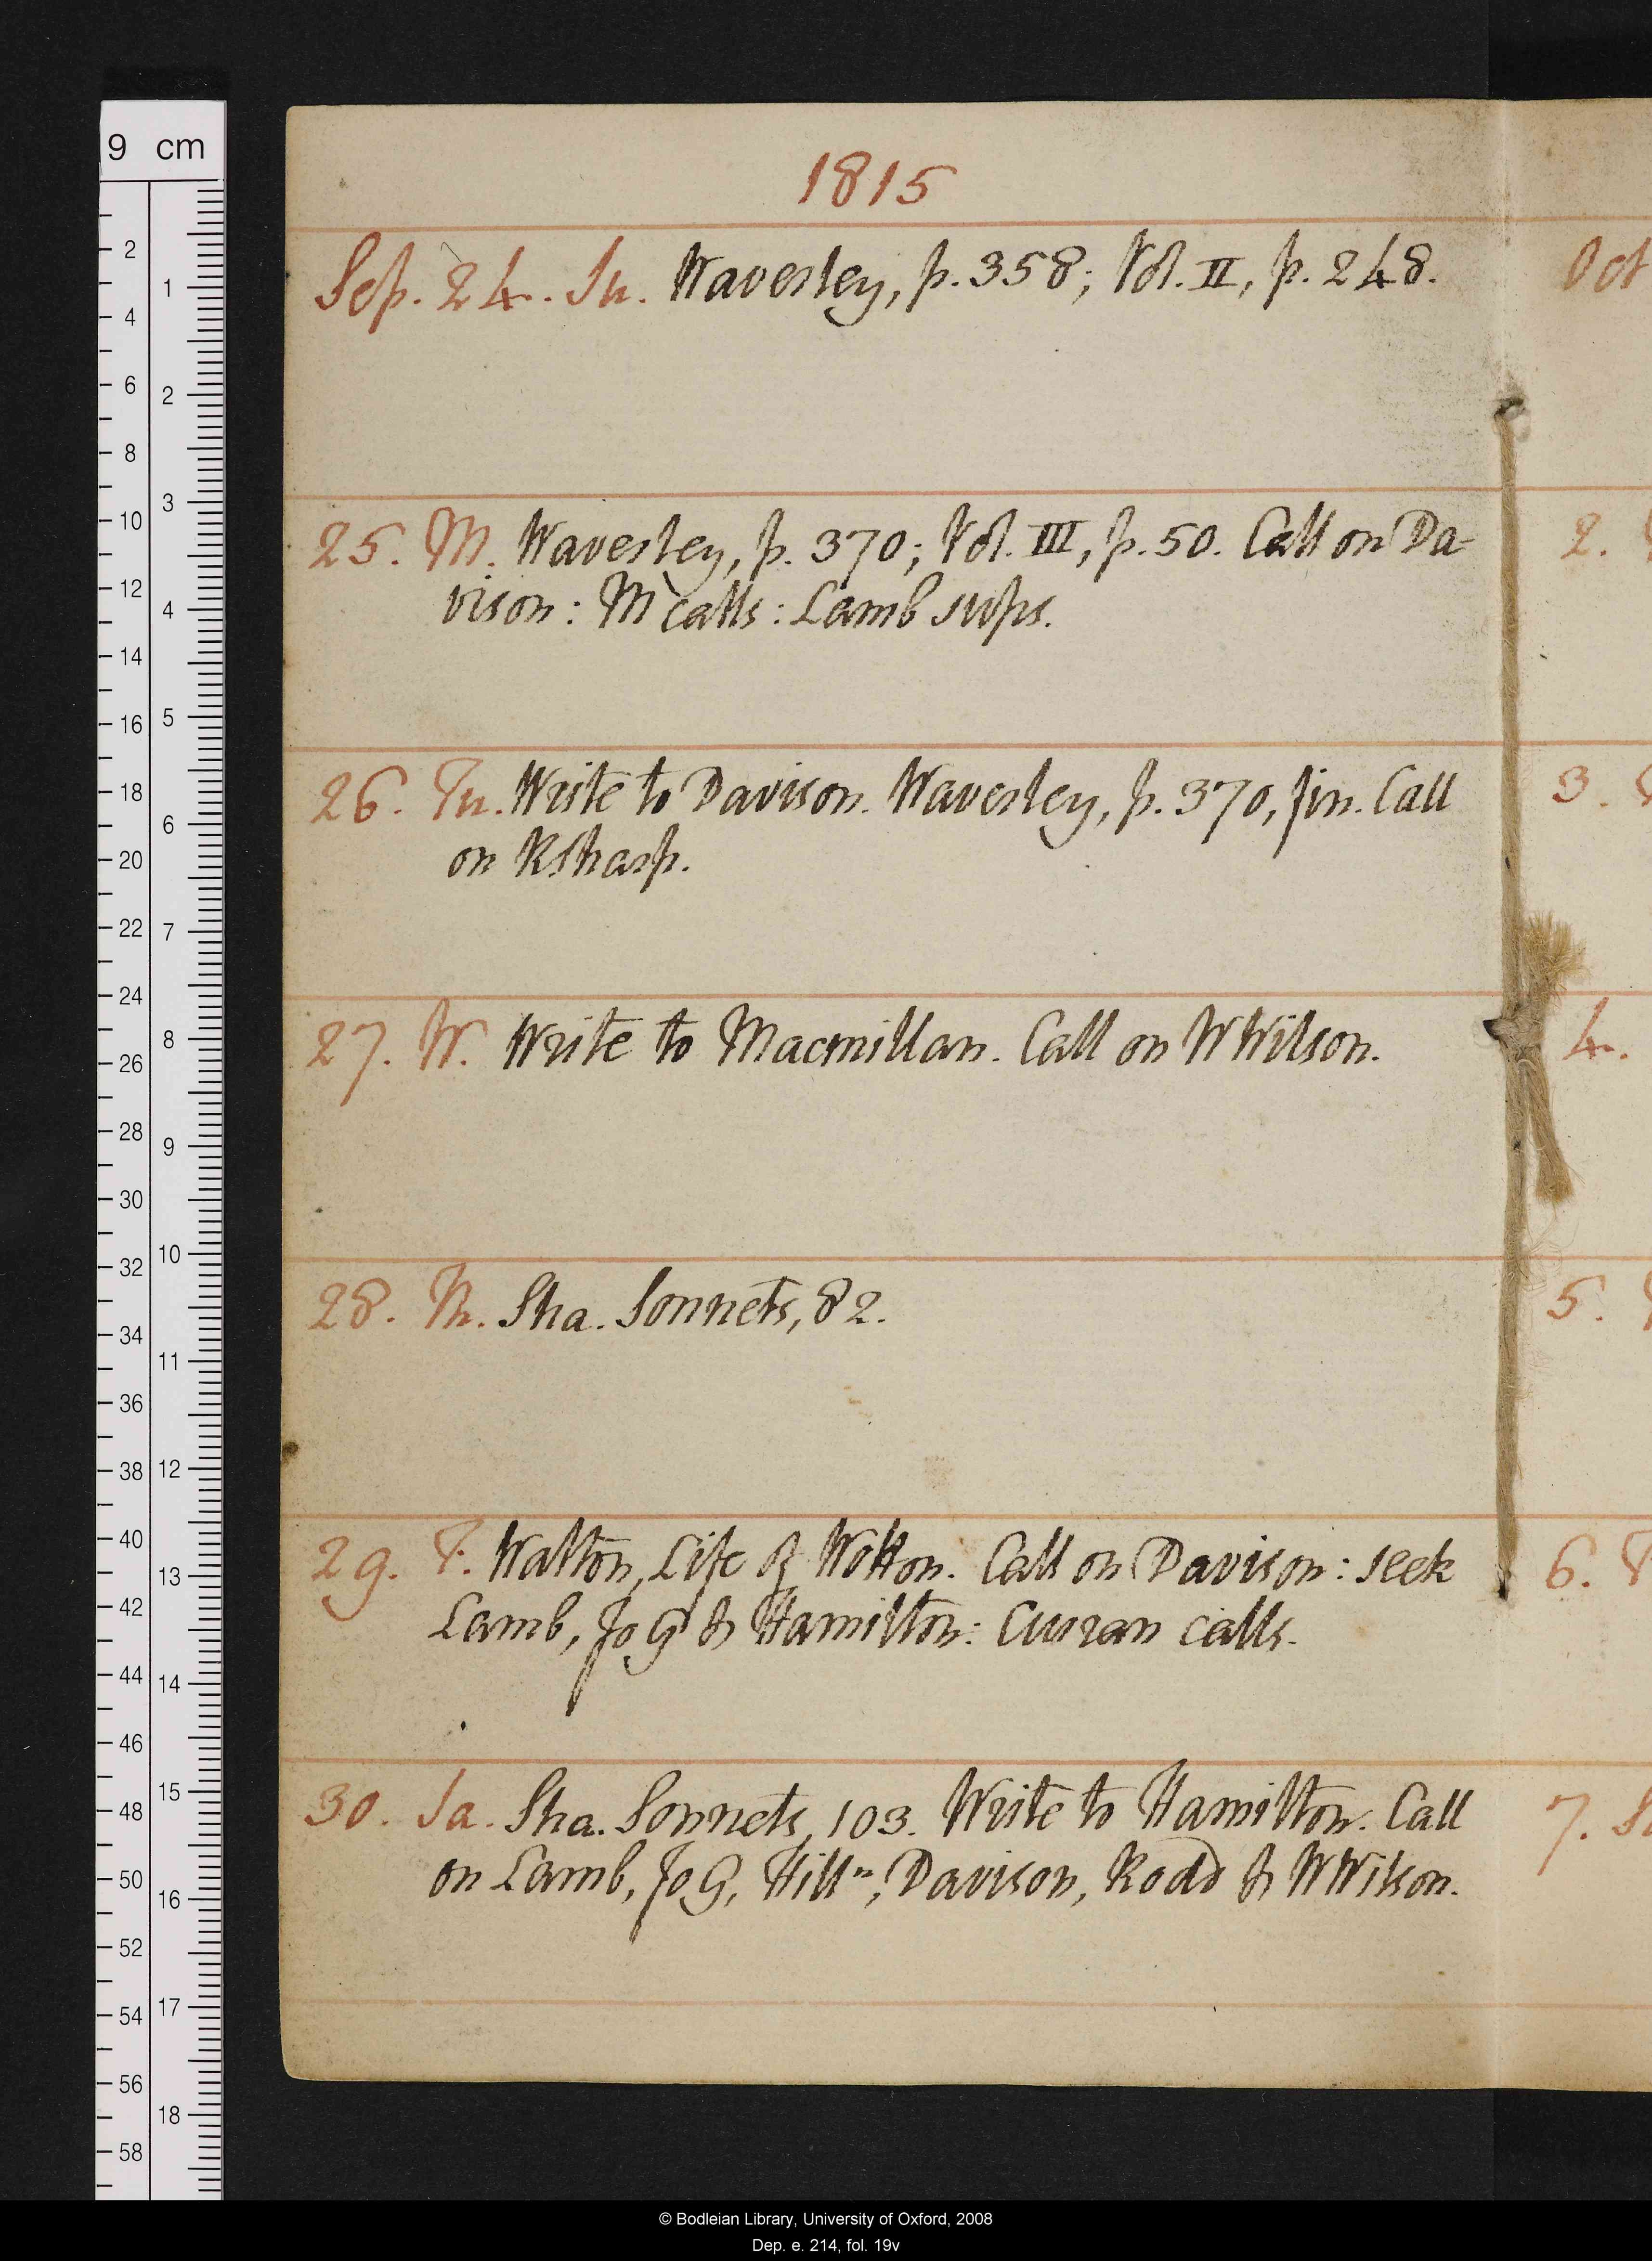 1815
Sep. 24. Su. Waverley, p. 358; Vol. II, p. 248.
25. M. Waverley, p. 370; Vol. III, p. 50. Call on Da-
vison: M calls: Lamb sups.
26. Tu. Write to Davison. Waverley, p. 370, fin. Call
on RSharp.
27. W. Write to Macmillan. Call on WWilson.
28. Th. Sha. Sonnets, 82.
29. F. Walton, Life of Wotton. Call on Davison: seek
Lamb, Jo G & Hamilton: Curran calls.
30. Sa. Sha. Sonnets, 103. Write to Hamilton. Call
on Lamb, Jo G, Hilln, Davison, Rodd & WWilson.
Oct
2.
3.
4.
5.
6.
7.
9 cm
2
4
6
8
10
12
14
16
18
20
22
24
26
28
30
32
34
36
38
40
42
44
46
48
50
52
54
56
58
1
2
3
4
5
6
7
8
9
10
11
12
13
14
15
16
17
18
© Bodleian Library, University of Oxford, 2008
Dep. e. 214, fol. 19v